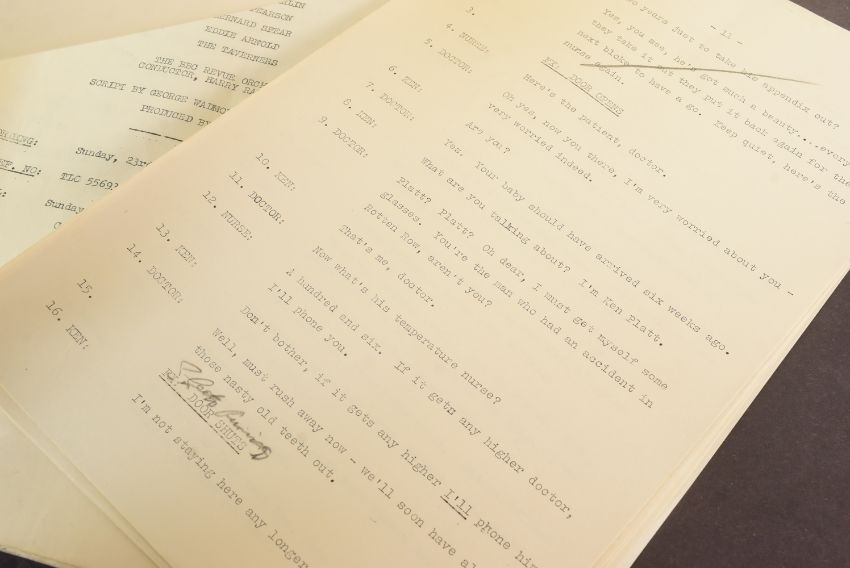 BERNARD SPEAR
EDDIE ARNOLD
THE TAVERNERS
THE BBC REVUE ORCH
CONDUCTOR, HARRY RA
SCRIPT BY GEORGE
PRODUCED BY
Sunday, 23r
NO: TLC 5569
Sunday
- 11 -
years just to take his appendix out?
Yes, you see, he's got such a beauty....every
they take it out they put it back again for the
next bloke to have a go. Keep quiet, here's the
nurse again.
3. FX: DOOR OPENS
4. NURSE: Here's the patient, doctor.
5. DOCTOR: Oh yes, now you there, I'm very worried about you -
very worried indeed.
6. KEN: Are you?
7. DOCTOR: Yes. Your baby should have arrived six weeks ago.
8. KEN: What are you talking about? I'm Ken Platt.
9. DOCTOR: Platt? Platt? Oh dear, I must get myself some
glasses. You're the man who had an accident in
Rotten Row, aren't you?
10. KEN: That's me, doctor.
11. DOCTOR: Now what's his temperature nurse?
12. NURSE: A hundred and six. If it gets any higher doctor,
I'll phone you.
13. KEN: Don't bother, if it gets any higher I'll phone him
14. DOCTOR: Well, must rush away now - we'll soon have al
those nasty old teeth out.
15. DOOR SHUTS
16. KEN: I'm not staying here any longer